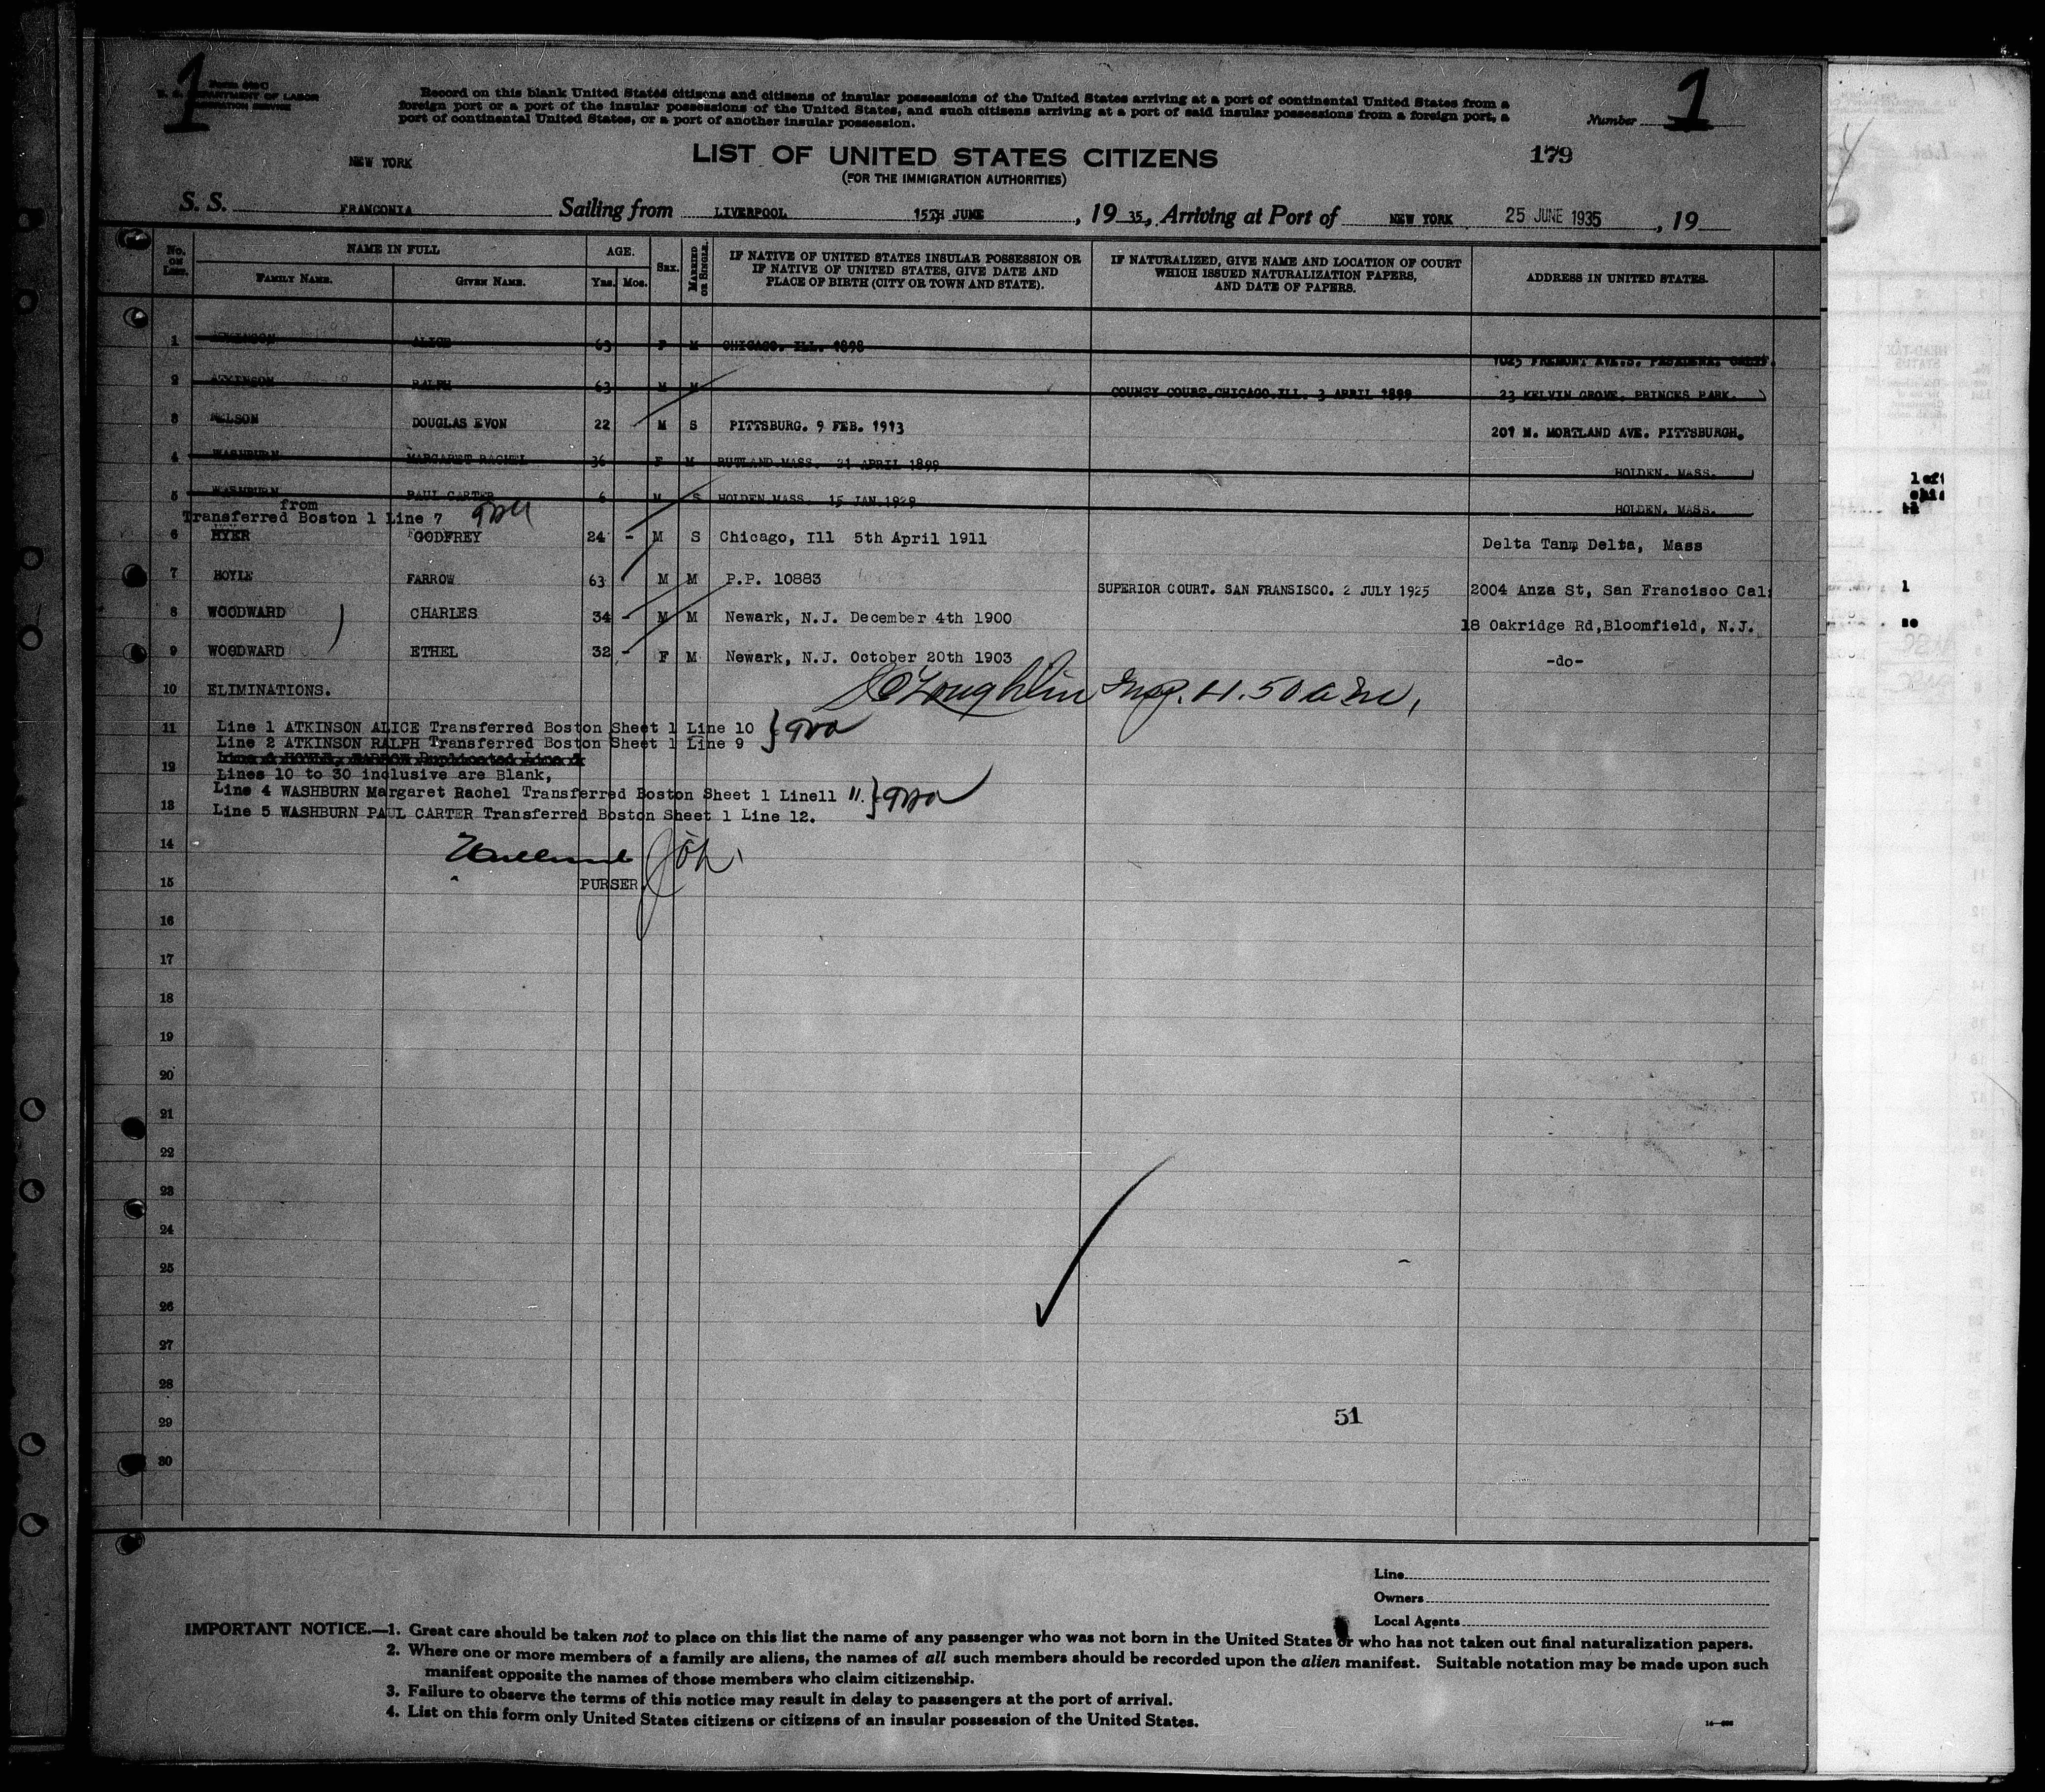 1
Form 630 C
U. S. DEPARTMENT OF LABOR
IMMIGRATION SERVICE
Record on this blank United States citizens and citizens of insular possessions of the United States arriving at a port of continental United States from a
foreign port or a port of the insular possessions of the United States, and such citizens arriving at a port of said insular possessions from a foreign port, a
port of continental United States, or a port of another insular possession.
Number 1
NEW YORK
LIST OF UNITED STATES CITIZENS
179
(FOR THE IMMIGRATION AUTHORITIES)
S. S. FRANCONIA Sailing from LIVERPOOL 15TH JUNE, 19 35, Arriving at Port of NEW YORK 25 JUNE 1935, 19
No. on List. NAME IN FULL AGE. Sex. MARRIED OR SINGLE. IF NATIVE OF UNITED STATES INSULAR POSSESSION OR IF NATIVE OF UNITED STATES, GIVE DATE AND PLACE OF BIRTH (CITY OR TOWN AND STATE). IF NATURALIZED, GIVE NAME AND LOCATION OF COURT WHICH ISSUED NATURALIZATION PAPERS, AND DATE OF PAPERS. ADDRESS IN UNITED STATES.
FAMILY NAME. GIVEN NAME. Yrs. Mos.
1 ATKINSON ALICE 63 F M CHICAGO. ILL. 1898 1025 FREMONT AVE.S. PASADENA. CALIF.
2 ATKINSON RALPH 63 M M COUNTY COURT.CHICAGO.ILL. 3 APRIL 1899 23 KELVIN GROVE. PRINCES PARK.
3 NELSON DOUGLAS EVON 22 M S PITTSBURG. 9 FEB. 1913 201 N. MORTLAND AVE. PITTSBURGH.
4 WASHBURN MARGARET RACHEL 36 F M RUTLAND.MASS. 21 APRIL 1899 HOLDEN. MASS.
5 WASHBURN PAUL CARTER 6 M S HOLDEN MASS. 15 JAN.1929 HOLDEN. MASS.
from
Transferred Boston 1 Line 7
6 HYER GODFREY 24 - M S Chicago, Ill 5th April 1911 Delta Tanp Delta, Mass
7 HOYLE FARROW 63 M M P.P. 10883 SUPERIOR COURT. SAN FRANSISCO. 2 JULY 1925 2004 Anza St, San Francisco Cal:
8 WOODWARD ) CHARLES 34 - M M Newark, N.J. December 4th 1900 18 Oakridge Rd,Bloomfield, N.J.
9 WOODWARD ETHEL 32 - F M Newark, N.J. October 20th 1903 -do-
10 ELIMINATIONS. O'Loughlin Insp. 11.50 a m,
11 Line 1 ATKINSON ALICE Transferred Boston Sheet 1 Line 10
Line 2 ATKINSON RALPH Transferred Boston Sheet 1 Line 9
12 Lines 10 to 30 inclusive are Blank,
Line 4 WASHBURN Margaret Rachel Transferred Boston Sheet 1 Line11 11.
13 Line 5 WASHBURN PAUL CARTER Transferred Boston Sheet 1 Line 12.
14
15 PURSER.
16
17
18
19
20
21
22
23
24
25
26
27
28
29 51
30
Line
Owners
Local Agents
IMPORTANT NOTICE.—1. Great care should be taken not to place on this list the name of any passenger who was not born in the United States or who has not taken out final naturalization papers.
2. Where one or more members of a family are aliens, the names of all such members should be recorded upon the alien manifest. Suitable notation may be made upon such
manifest opposite the names of those members who claim citizenship.
3. Failure to observe the terms of this notice may result in delay to passengers at the port of arrival.
4. List on this form only United States citizens or citizens of an insular possession of the United States.